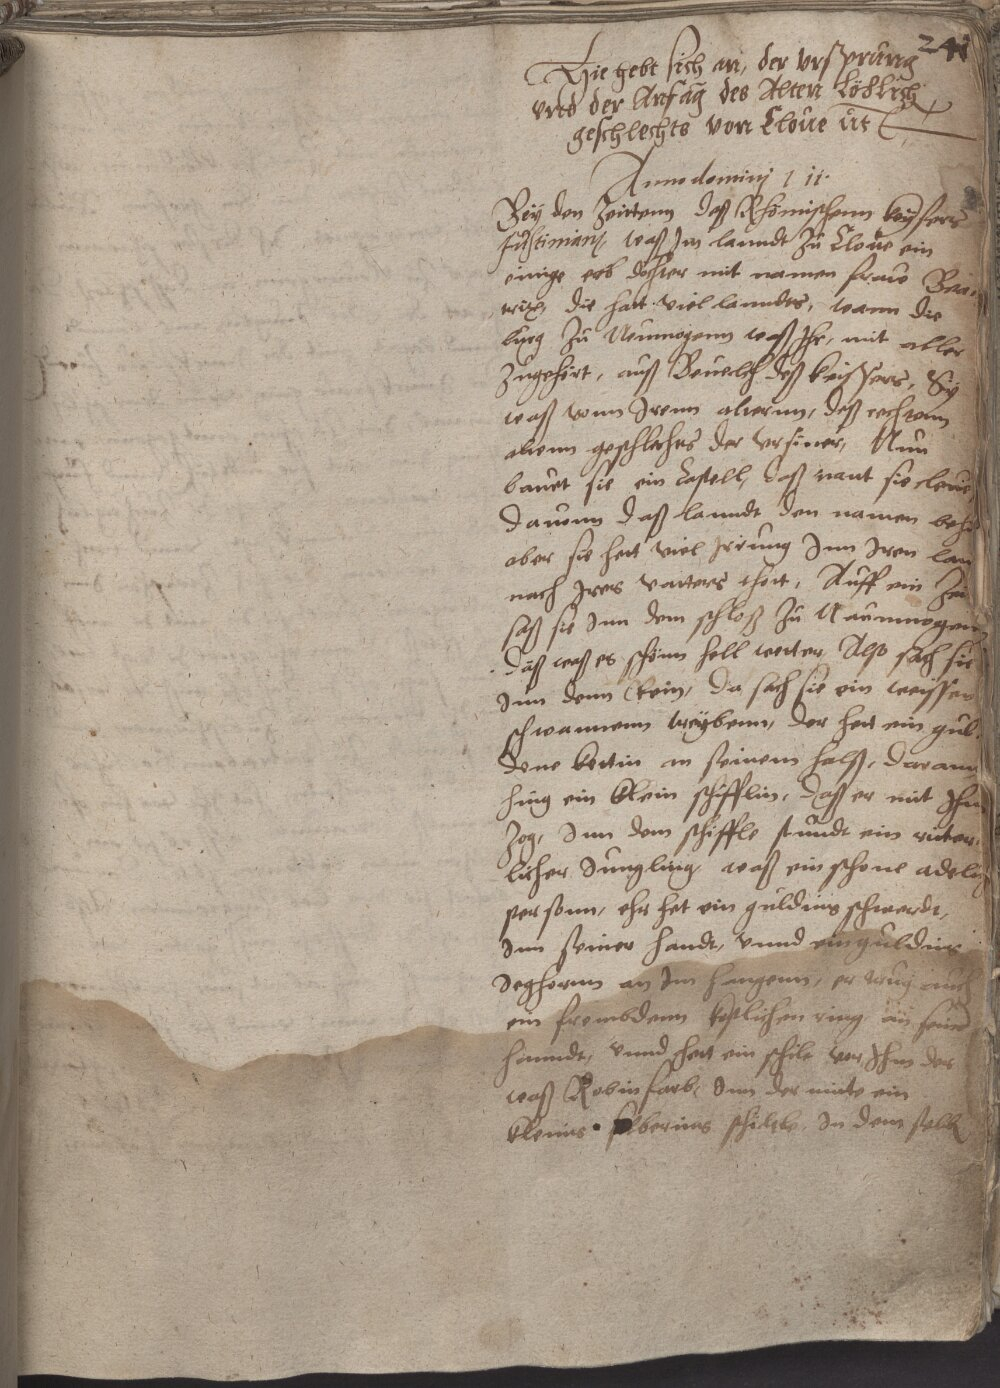 241
Hie hebt sich an, der ursprung
und der Anfāg des Alten Löblich
geschlechts von Cleve
Anno domini 711.
Bey den Zeittenn deß Rhömischenn keysers
Justiniani, waß Jm lanndt Zu Cleve ein
einige erb dohter mit namen fraw Bea-
trix, die hatt viel lanndts, wann die
burg Zu Neumogenn waß Jhr, mit aller
Zugehört, auß Bevelch deß keissers, Sy
waß vonn Jrenn alternn, deß rechtenn
altenn geschlechts der Ursiner, Nun
bauet sie ein Castell, daß nant sie cleve
Davonn daß lanndt den namen beh
aber sie hett viel Jrrung Jnn Jren lan
nach Jres vatters thott, Auff ein Zei
saß sie Jnn dem schloß Zu Naumnogenn
Daß waß es schönn hell wetter, Also sach sie
Jnn denn Rein, da sach sie ein weissen
schwannenn treybenn, der hett ein gul-
dene kettin an seinem halß, daran
hing ein klein schifflin, daß er mit Jhm
Zog, Jnn dem schiffle stundt ein ritter-
licher Jungling, waß ein schone adelig
personn, ehr het ein guldins schwerdt,
Jnn seiner handt, unnd ein guldins
Jeghornn an Jm hangenn, er trug auch
ein frembdenn kostlichen ring an seine
hanndt, unnd hett ein schilt vor Jhm der
waß Robinfarb, Jnn der mitte ein
kleins silberins schiltle, Jn dem selb